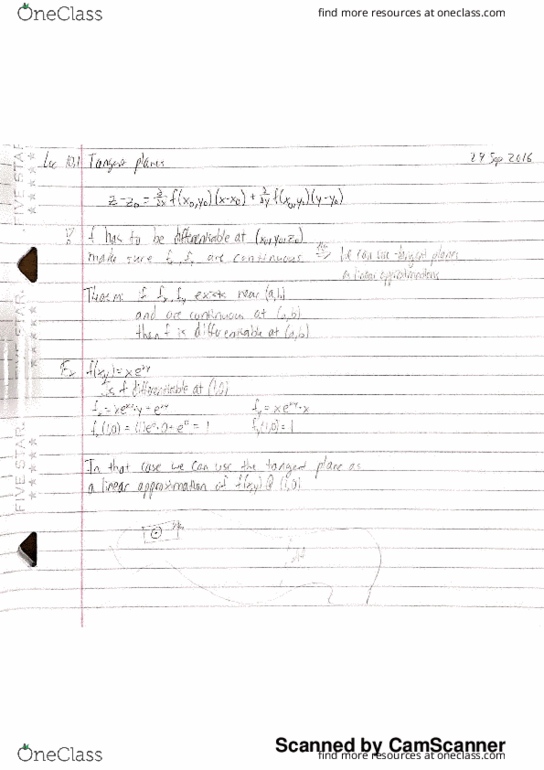 OneClass
find more resources at oneclass.com
Lec 10.1 Tangent planes
29 Sep 2016
z-z₀ = ∂/∂x f(x₀,y₀)(x-x₀) + ∂/∂y f(x₀,y₀)(y-y₀)
f has to be differentiable at (x₀,y₀,z₀)
make sure fₓ, fᵧ are continuous
we can use tangent planes
as linear approximations
Theorem: if fₓ, fᵧ exists near (a,b)
and are continuous at (a,b)
then f is differentiable at (a,b)
Ex f(x,y) = xe^xy
is f differentiable at (1,0)
fₓ = xe^xy·y + e^xy
fᵧ = xe^xy·x
fₓ(1,0) = (1)e⁰·0 + e⁰ = 1
fᵧ(1,0) = 1
In that case we can use the tangent plane as
a linear approximation of f(x,y) @ (1,0)
FIVE STAR
FIVE STAR
FIVE STAR
Scanned by CamScanner
OneClass
find more resources at oneclass.com